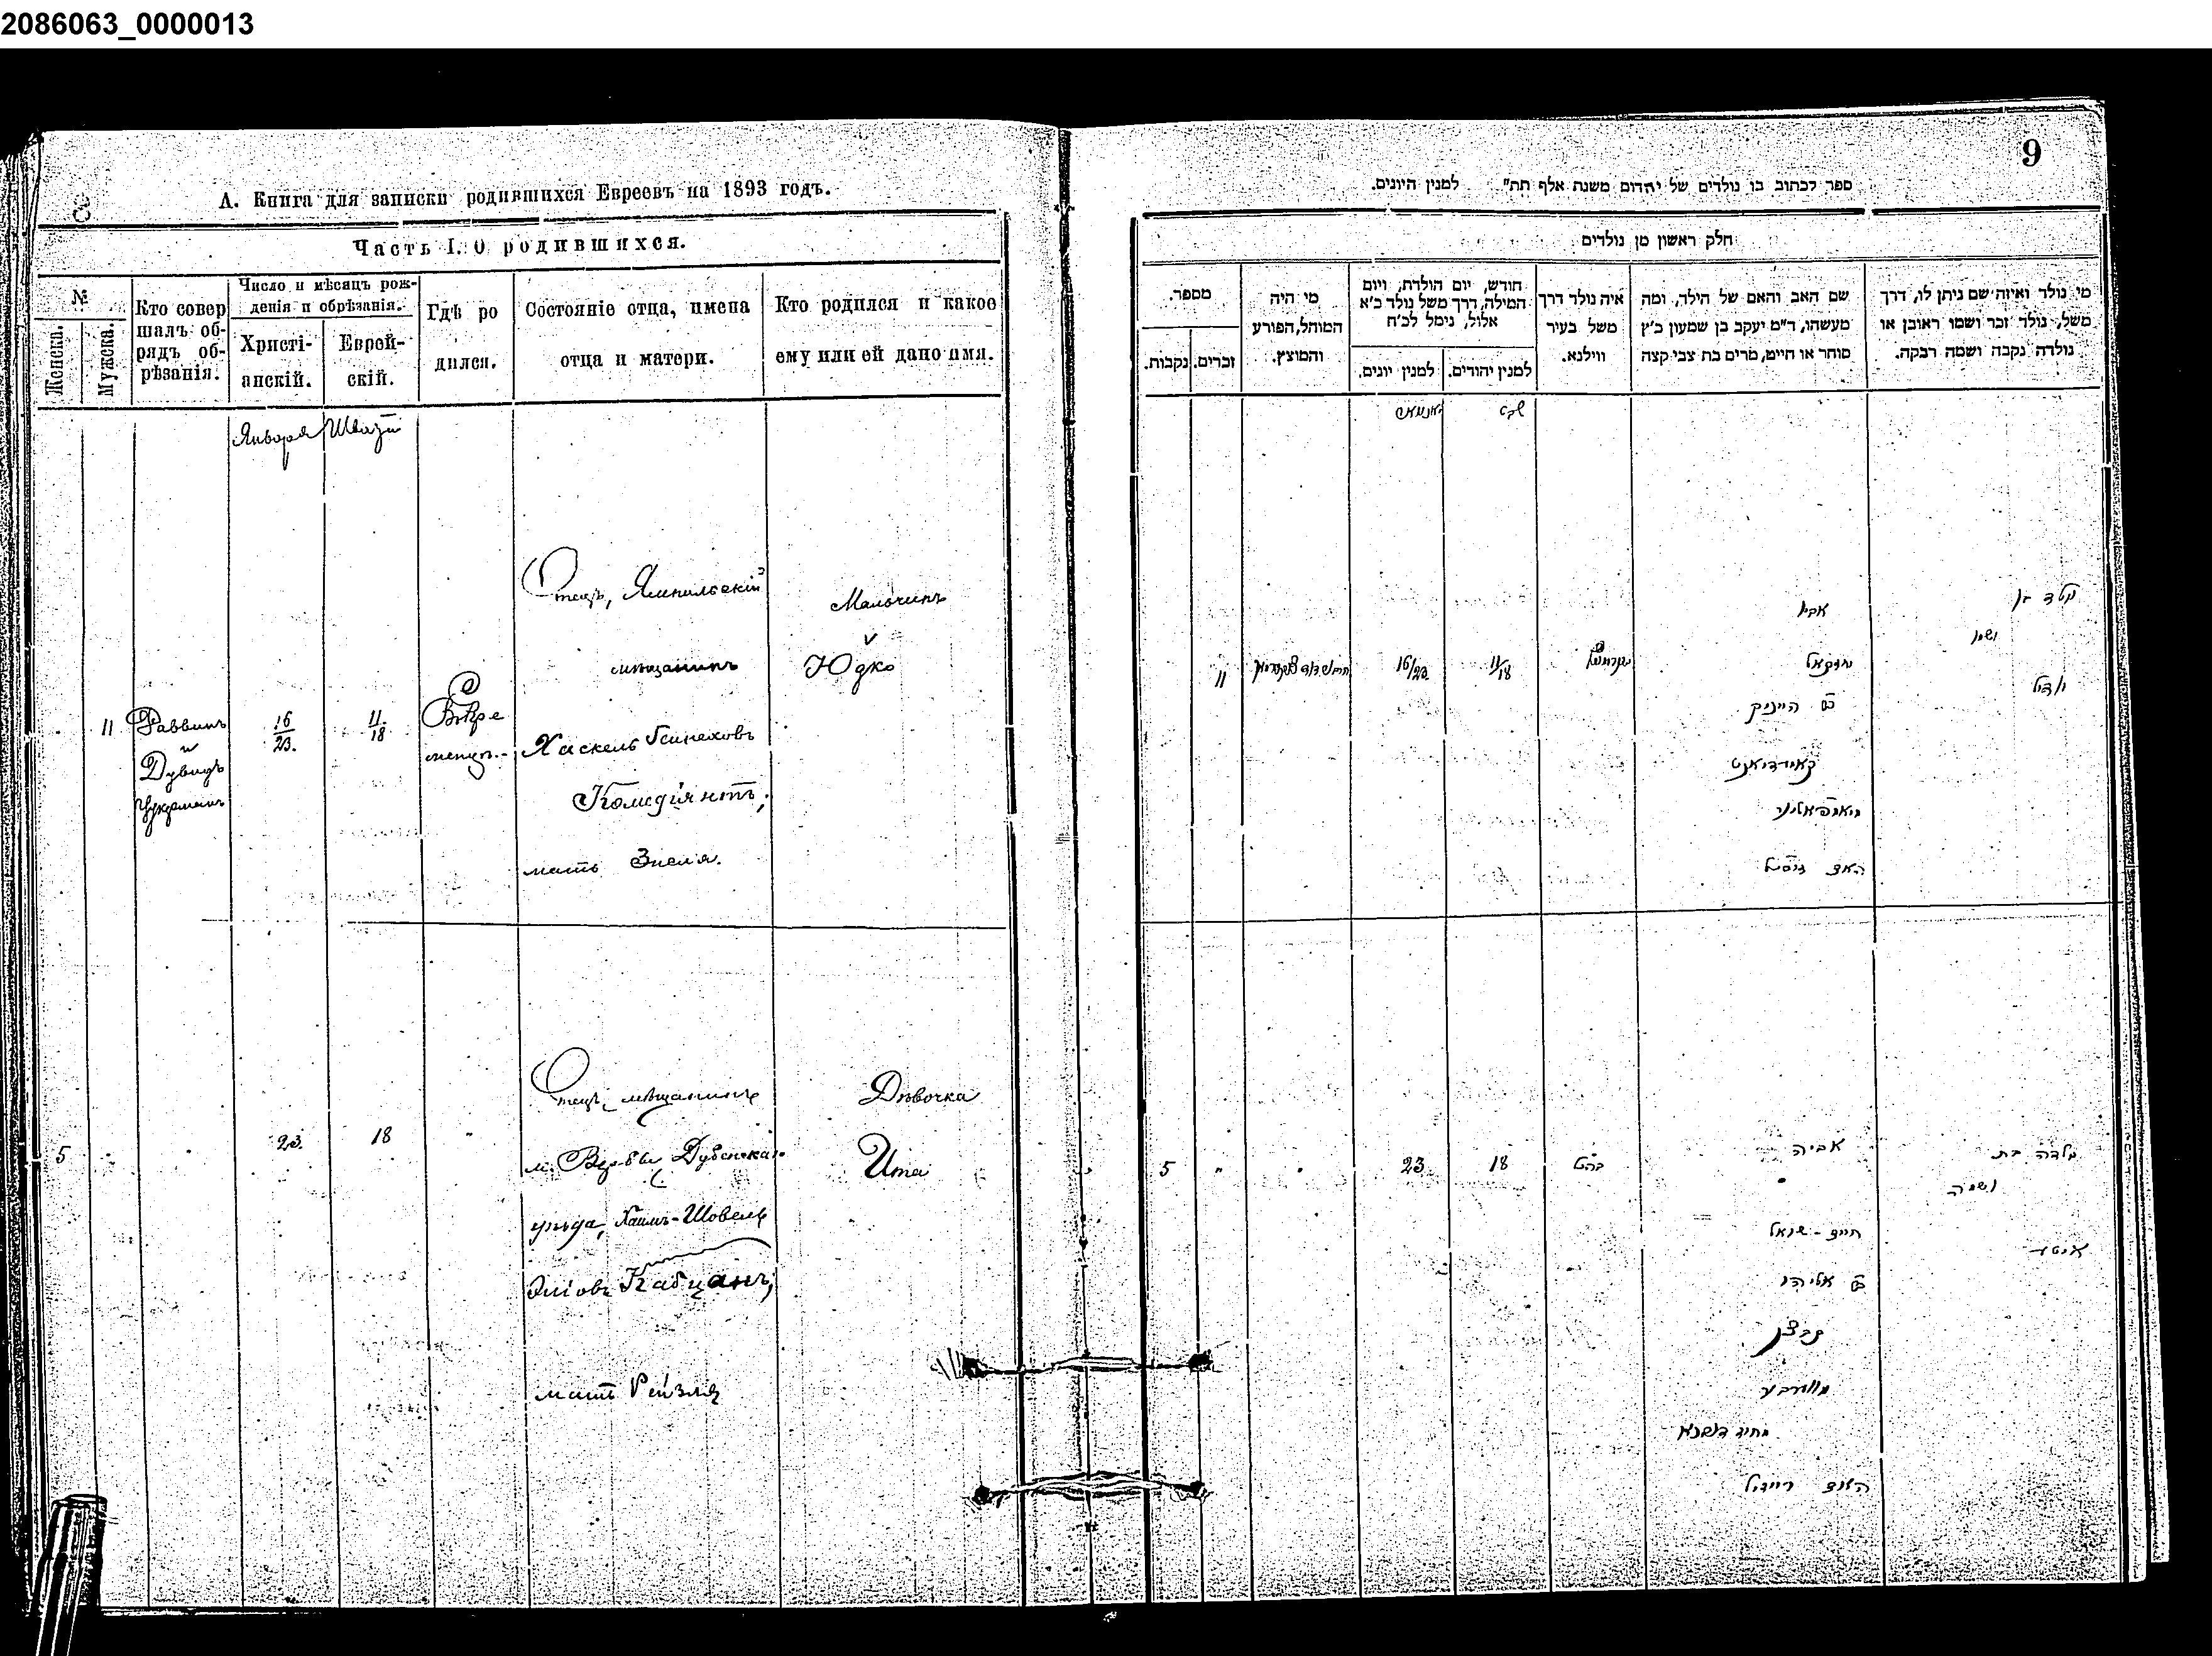 2086063_0000013
А. Книга для записки родившихся Евреевъ на 1893 годъ.
Часть I. О родившихся.
№
Женска.
Мужска.
Кто совер
шалъ об-
рядъ об-
рѣзанія.
Число и мѣсяцъ рож-
денія и обрѣзанія.
Христі-
анскій.
Еврей-
скій.
Гдѣ ро
дился.
Состояніе отца, имена
отца и матери.
Кто родился и какое
ему или ей дано имя.
Января
11
Раввинъ
и
Дувидъ
Цукерманъ
16
23.
11.
18
Въ Кре
менцѣ.
Отецъ, Ямпольскій
мѣщанинъ
Хаскель
Комедіянтъ,
мать Зисля.
Мальчикъ
Юдко
5
23.
18
"
Отецъ, мѣщанинъ
м. Вербы Дубенскаго
уѣзда, Хаимъ-Шовель
Эліовъ Кабцанъ,
мать Рейзля
Дѣвочка
Ита
9
ספר לכתוב בו נולדים של יהדום משנת אלף תת" למנין היונים.
חלק ראשון מן נולדים
מי נולד ואיזה שם ניתן לו, דרך
משל, נולד זכר ושמו ראובן או
נולדה נקבה ושמה רבקה.
שם האב והאם של הילד, ומה
מעשהו, ד"מ יעקב בן שמעון כ"ץ
סוחר או חייט, מרים בת צבי קצה
איה נולד דרך
משל בעיר
ווילנא.
חודש, יום הולדת, ויום
המילה, דרך משל נולד כ"א
אלול, נימל לכ"ח
למנין יהודים.
למנין יונים.
מי היה
המוהל, הפורע
והמוצץ.
מספר.
זכרים.
נקבות.
שבט
ילד בן
ושמו
יודיל
אביו
יחזקאל
11/18
16/23.
11
האם
ילדה בת
ושמה
איטא
אביה
חיים - שואל
ב"ר אליהו
קבצן
האם רייזיל
18
23.
"
"
5